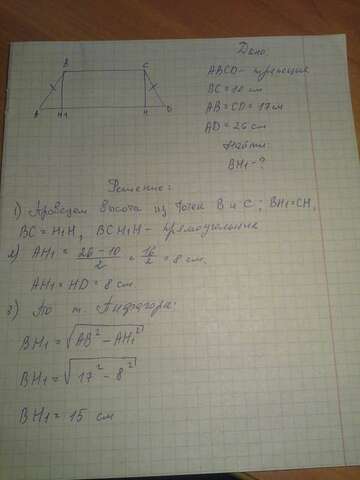 Дано:
B C
ABCD - трапеция
BC = 10 см
AB = CD = 17 см
A H1 H D
AD = 26 см
Найти:
BH1 - ?
Решение:
1) Проведем высота из точек B и C; BH1 = CH,
BC = H1H, BCH1H - прямоугольник
2) AH1 = 26 - 10 / 2 = 16 / 2 = 8 см
AH1 = HD = 8 см
3) По т. Пифагора:
BH1 = √AB² - AH1²
BH1 = √17² - 8²
BH1 = 15 см